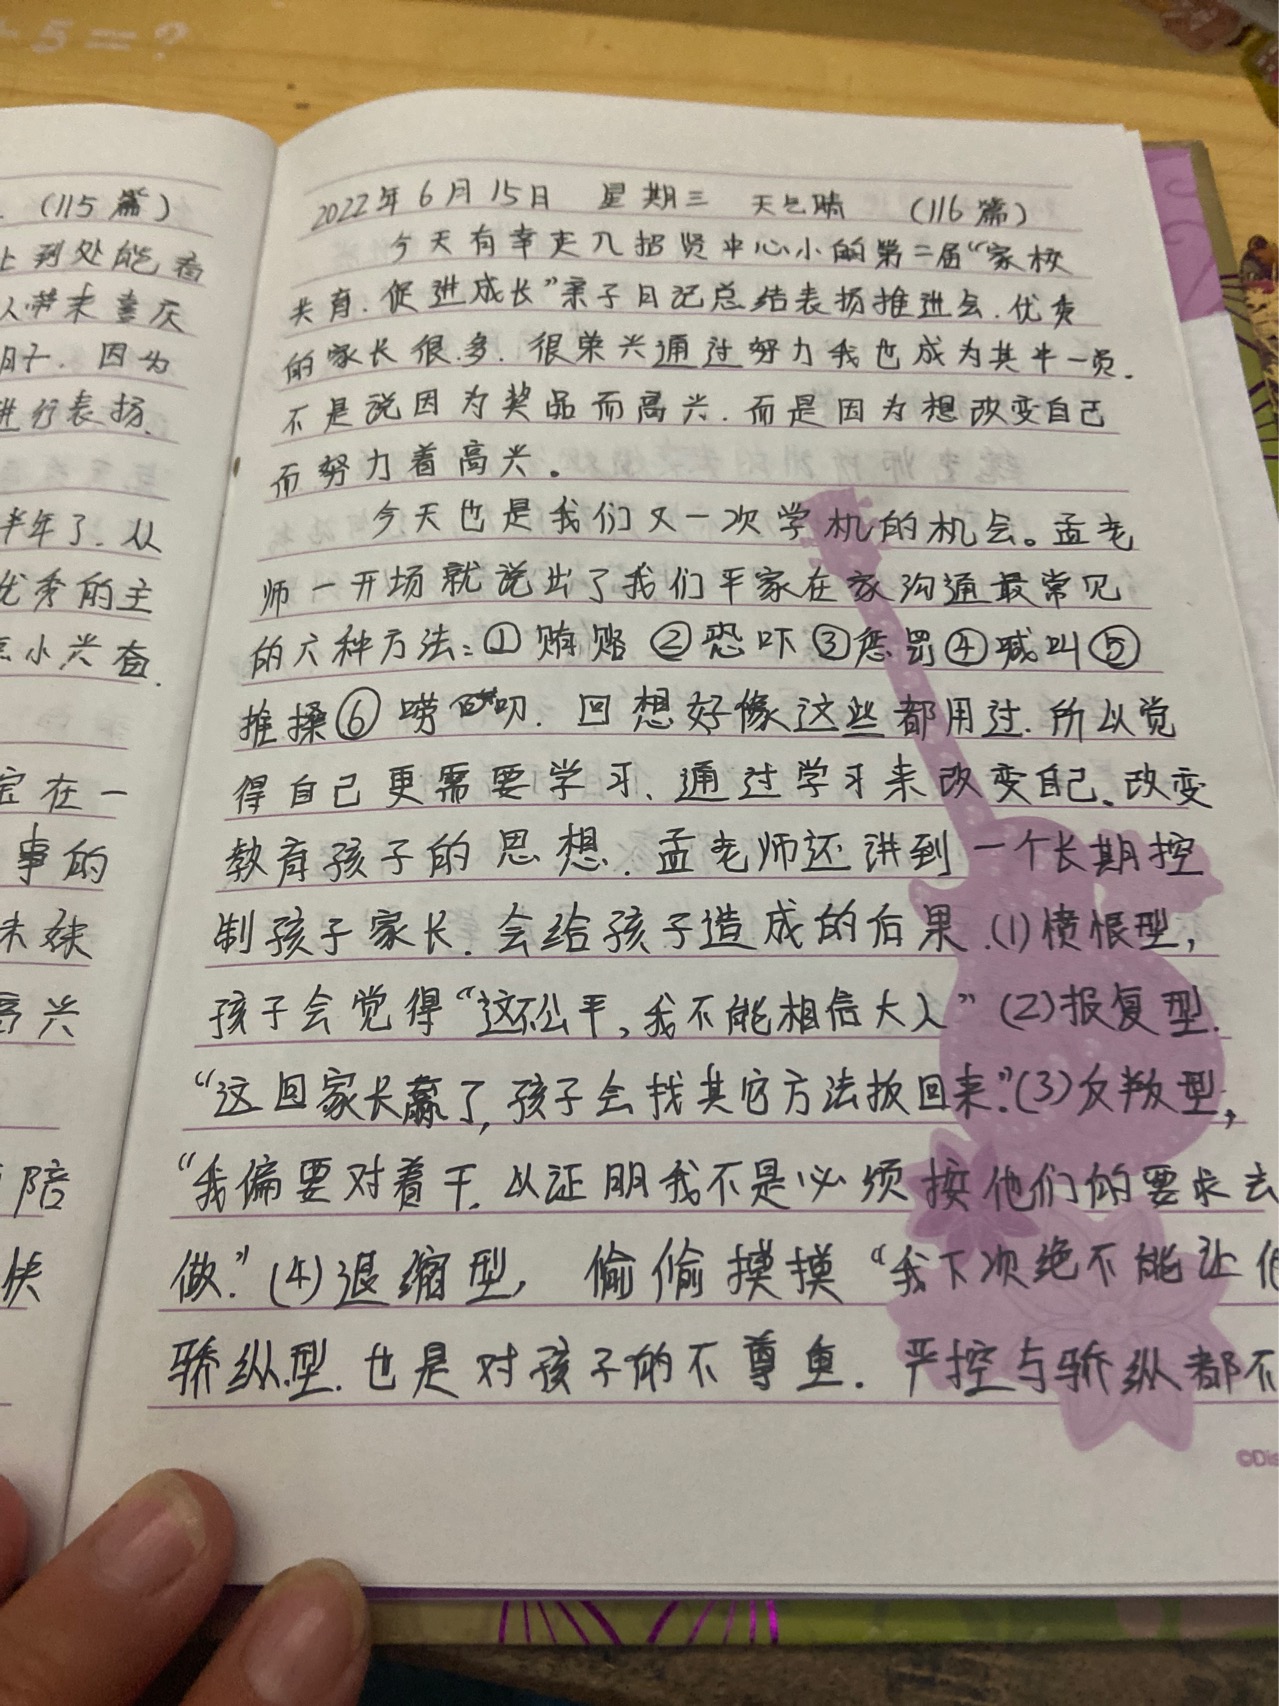 +5=?
(115篇)
上到处能看
因为
进行表扬.
半年了.从
优秀的主
小兴奋.
定在一
事的
妹妹
高兴
陪
快
2022年6月15日 星期三 天气晴 (116篇)
今天有幸走入招贤中心小的第二届“家校
共育.促进成长”亲子日记总结表扬推进会.优秀
的家长很.多.很荣兴通过努力我也成为其中一员.
不是说因为奖品而高兴.而是因为想改变自己
而努力着高兴。
今天也是我们又一次学机的机会。孟老
师一开场就说出了我们平家在家沟通最常见
的六种方法:①贿赂②恐吓③惩罚④喊叫⑤
推搡⑥唠叨.回想好像这些都用过.所以觉
得自己更需要学习、通过学习来改变自己、改变
教育孩子的思想.孟老师还讲到一个长期控
制孩子家长.会给孩子造成的后果.(1)愤恨型,
孩子会觉得“这不公平,我不能相信大人”(2)报复型.
“这回家长赢了,孩子会找其它方法扳回来.”(3)反叛型,
“我偏要对着干.以证明我不是必须按他们的要求去
做.”(4)退缩型,偷偷摸摸“我下次绝不能让
骄纵型.也是对孩子的不尊重.严控与骄纵都不
©Dis